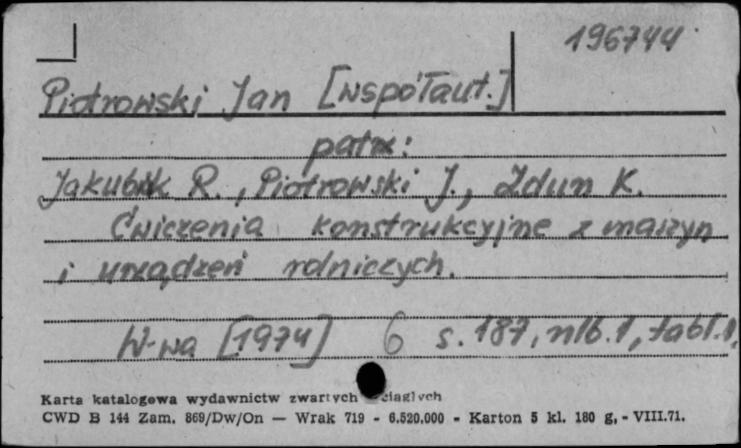 196744
Piotrowski Jan [współaut.]
patrz:
Jakubik R., Piotrowski J., Zdun K.
Ćwiczenia konstrukcyjne z maszyn
i urządzeń rolniczych.
W-wa [1974] 6 s. 187, nlb. 1, tabl. 1,
Karta katalogowa wydawnictw zwartych ciągłych
CWD B 144 Zam. 869/Dw/On — Wrak 719 - 6.520.000 - Karton 5 kl. 180 g, - VIII.71.